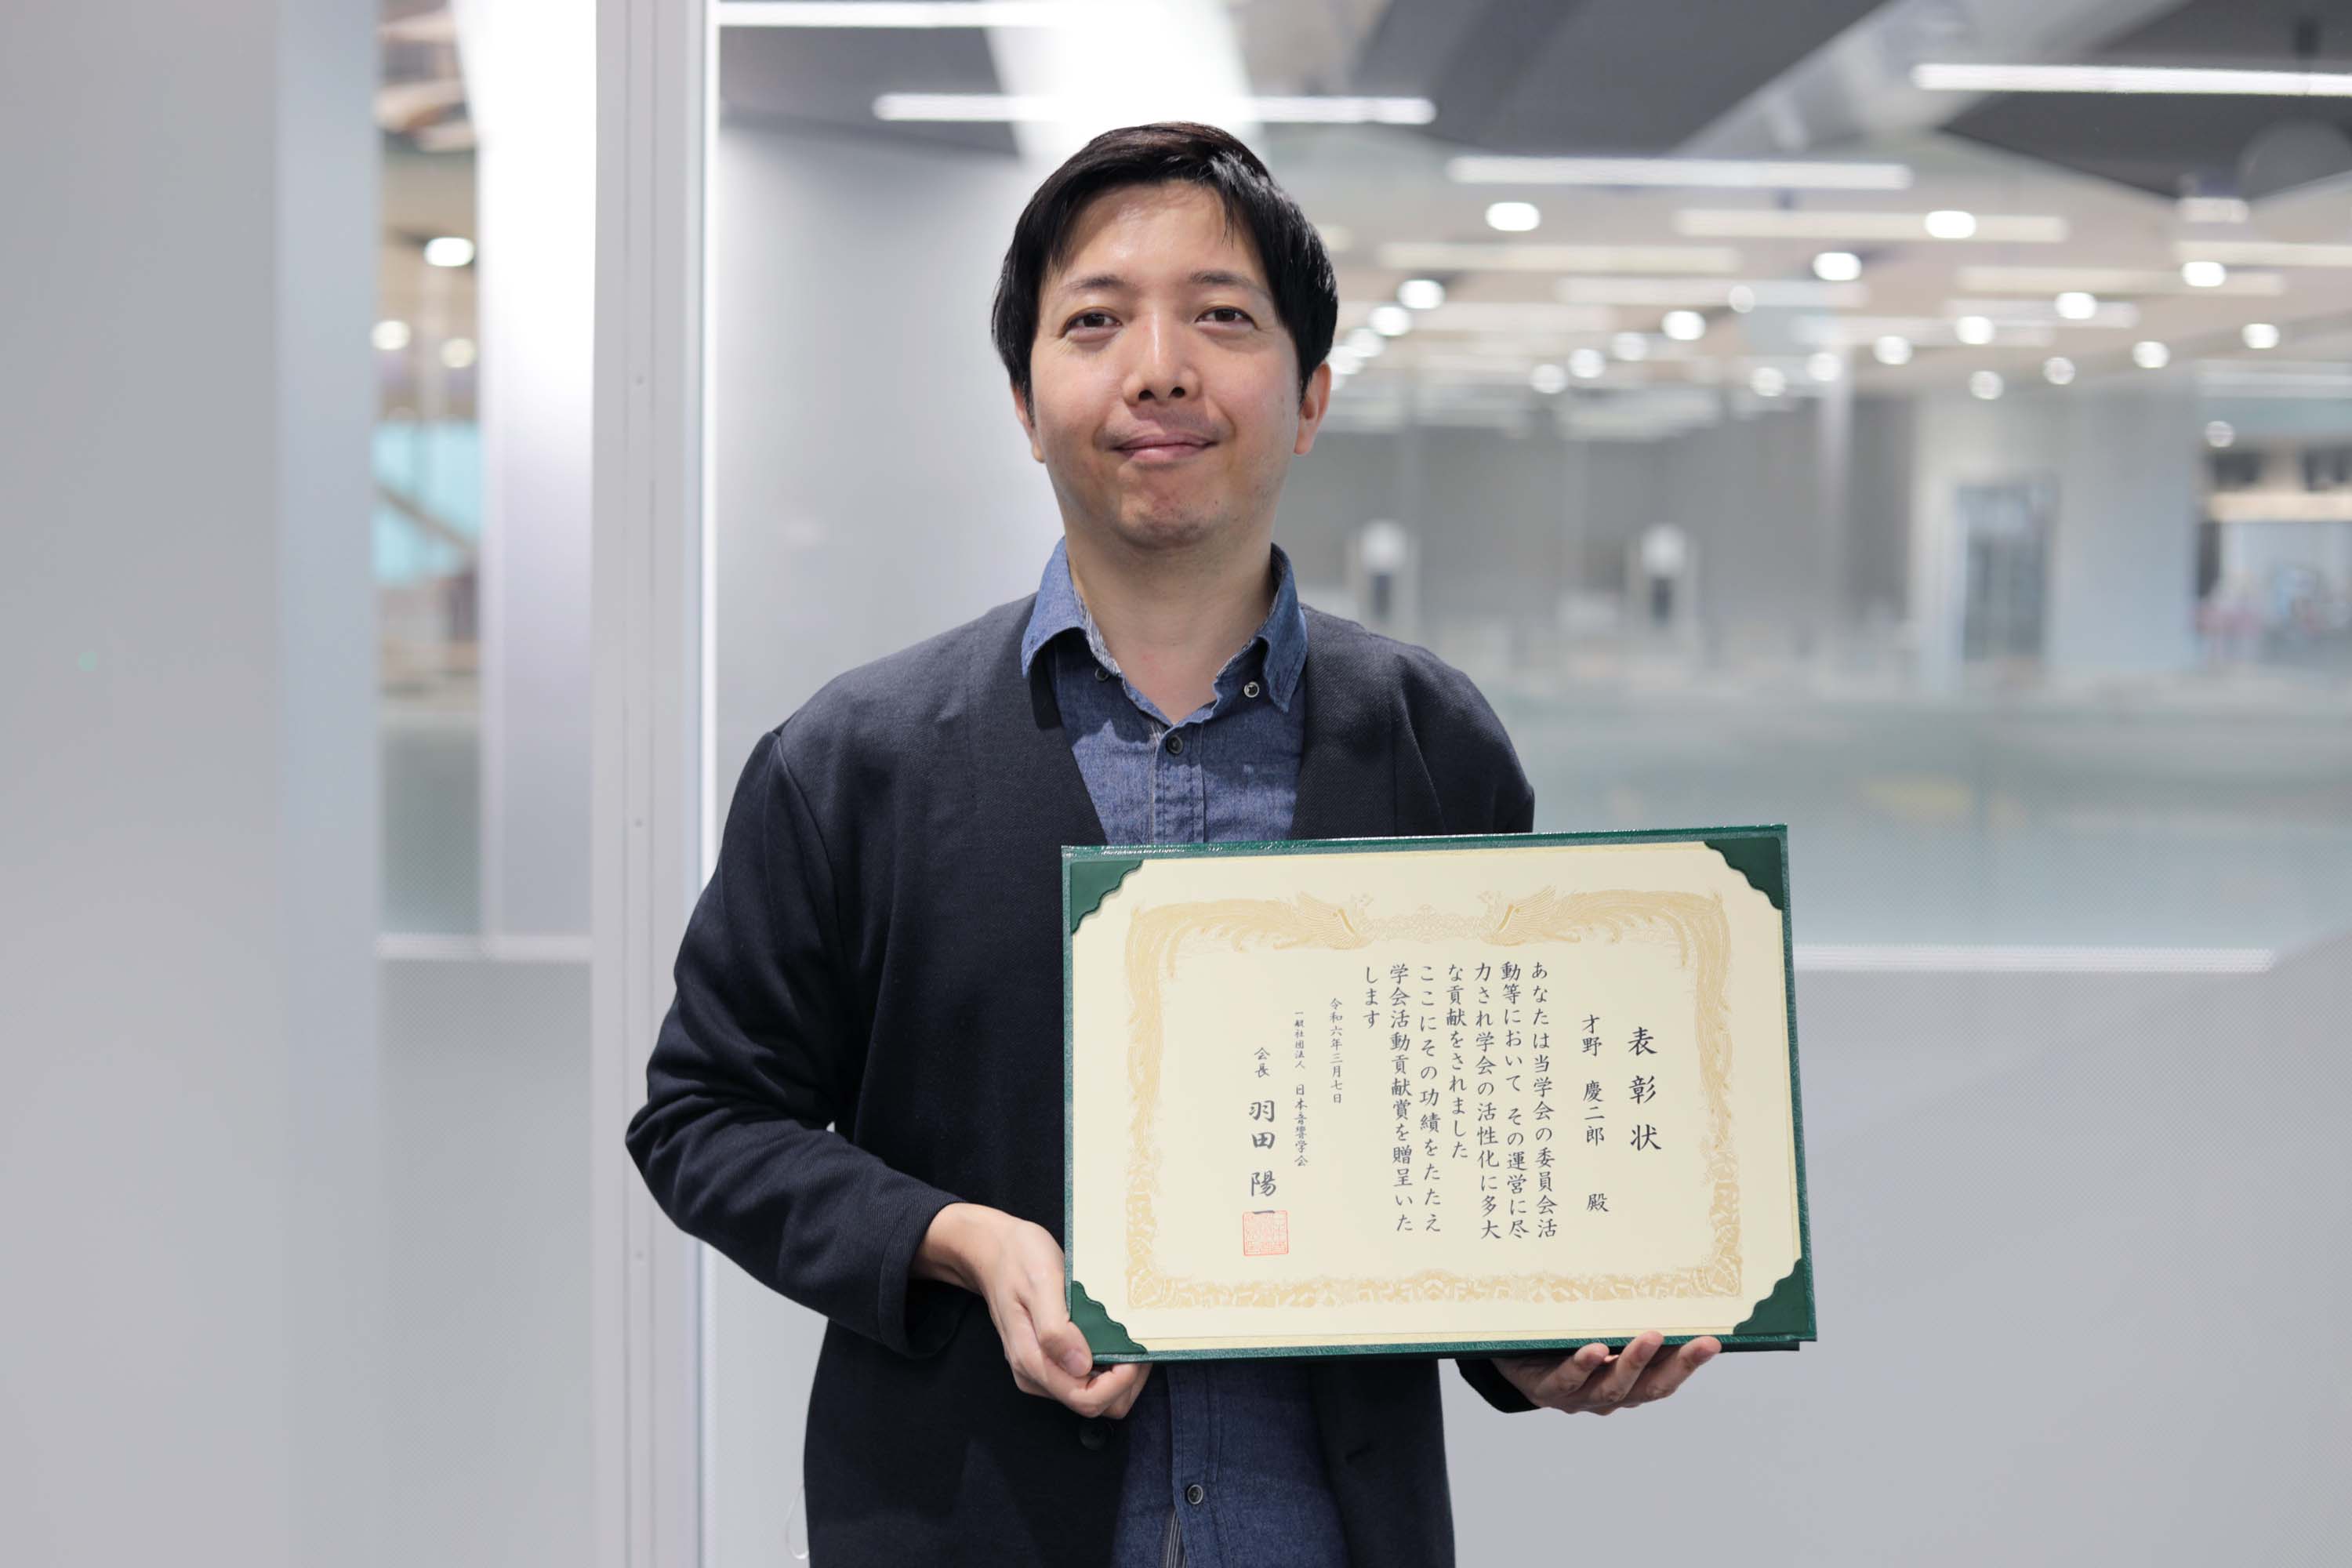 表彰状
才野 慶二郎 殿
あなたは当学会の委員会活
動等において その運営に尽
力され学会の活性化に多大
な貢献をされました
ここにその功績をたたえ
学会活動貢献賞を贈呈いた
します
令和六年三月七日
一般社団法人 日本音響学会
会長 羽田 陽一